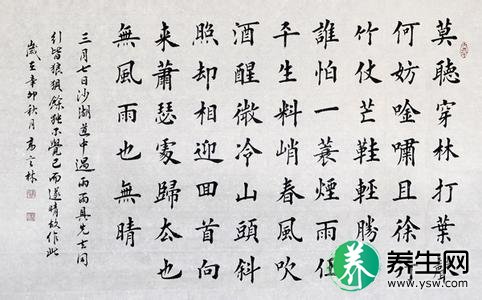 莫聽穿林打葉聲
何妨唫嘯且徐行
竹仗芒鞋輕勝
誰怕一蓑煙雨任
平生料峭春風吹
酒醒微冷山頭斜
照却相迎回首向
来蕭瑟處歸去也
無風雨也無晴
三月七日沙湖道中遇雨雨具先去同
行皆狼狽餘獨不覺已而遂晴故作此
歲在辛卯秋月高云林
养生网
www.ysw.com